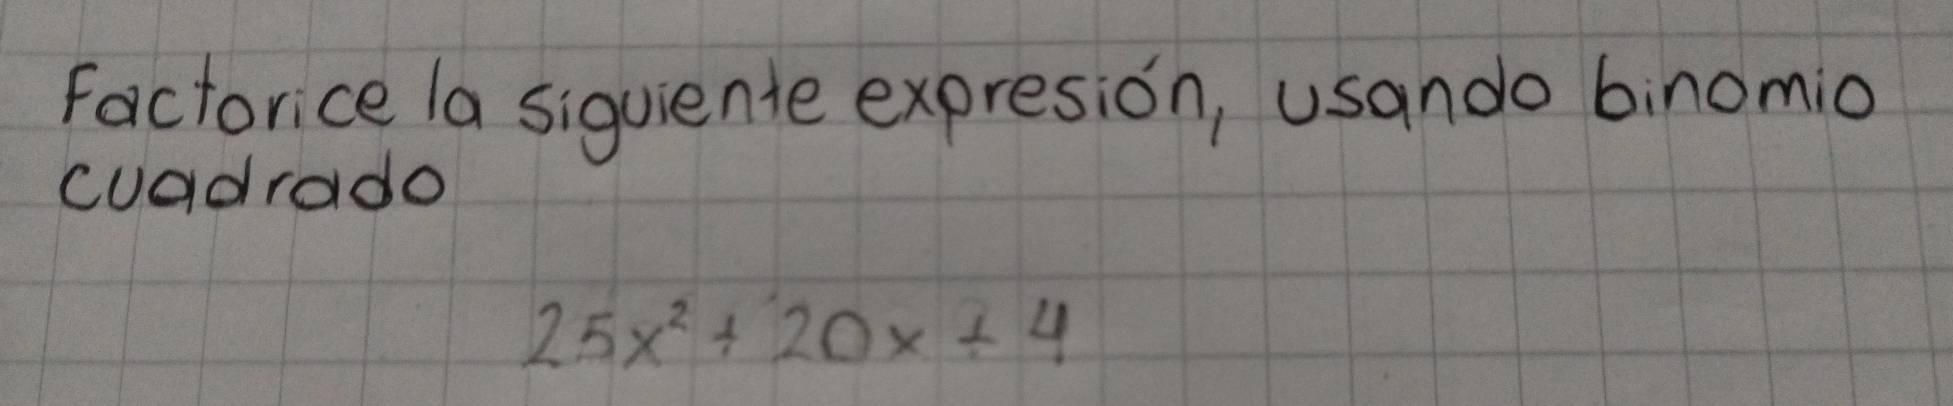 Factorice la siguiente expresión, usando binomio
cuadrado
25x² + 20x + 4